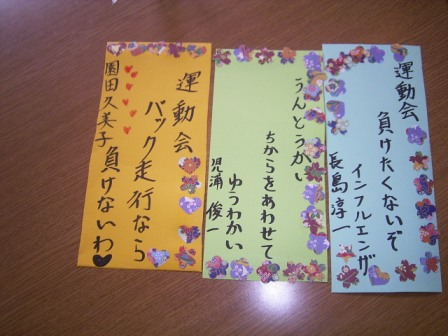 運動会
負けたくないぞ
インフルエンザ
長島淳一
うんどうかい
ちからをあわせて
ゆうわかい
児浦俊一
運動会
バック走行なら
負けないわ♥
園田久美子